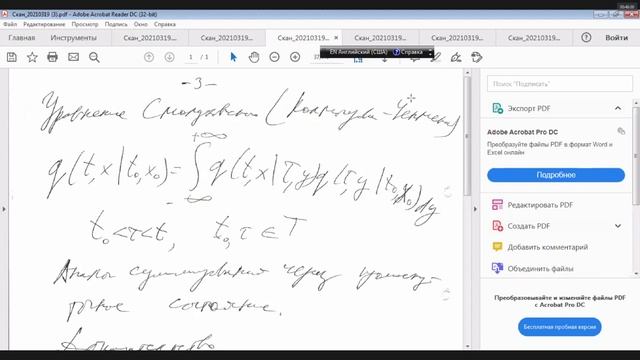 00:46:00
Скан_20210319 (3).pdf - Adobe Acrobat Reader DC (32-bit)
Файл Редактирование Просмотр Подписание Окно Справка
Главная Инструменты Скан_20210319... Скан_20210319... Скан_20210319... Скан_20210319... Скан_20210319... Скан_20210319... Войти
EN Английский (США) Справка
1 / 1
- 3 -
Уравнение Смолуховского (Колмогорова-Чепмена)
q(t,x|t₀,x₀) = ∫_{-∞}^{+∞} q(t,x|τ,y) q(τ,y|t₀,x₀) dy
t₀<τ<t, t₀, τ ∈ T
Аналог суммирования через промежу-
точное состояние.
Доказательство
Поиск "Подписать"
Экспорт PDF
Adobe Acrobat Pro DC
Преобразуйте файлы PDF в формат Word и Excel онлайн
Подробнее
Редактировать PDF
Создать PDF
Добавить комментарий
Объединить файлы
Преобразовывайте и изменяйте файлы PDF с Acrobat Pro DC
Бесплатная пробная версия